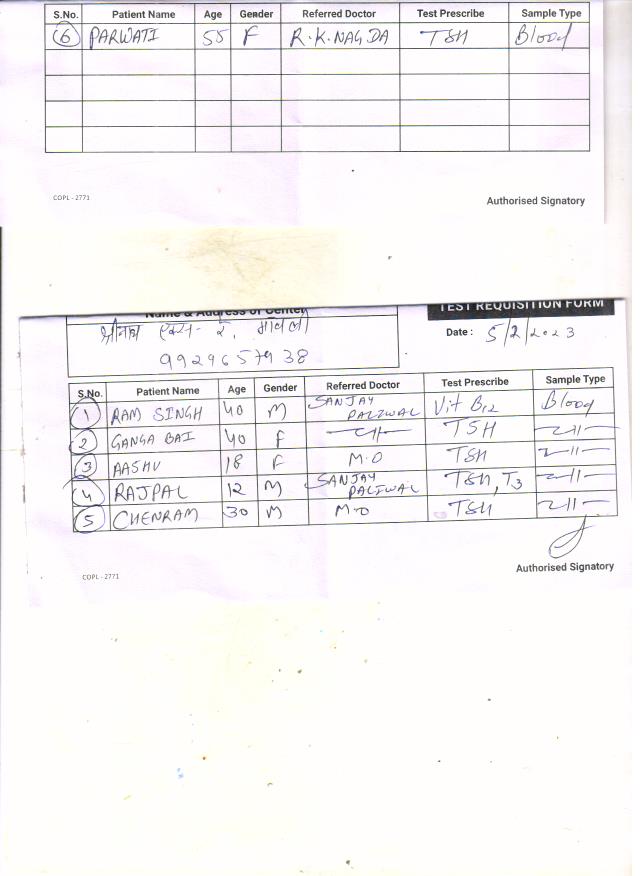 S.No. Patient Name Age Gender Referred Doctor Test Prescribe Sample Type
6 PARWATI 55 F R.K.NAGDA TSH Blood
COPL - 2771
Authorised Signatory
Name & Address of Center
TEST REQUISITION FORM
Date : 5/2/2023
S.No. Patient Name Age Gender Referred Doctor Test Prescribe Sample Type
1 RAM SINGH 40 M SANJAY PALIWAL Vit B12 Blood
2 GANGA BAI 40 F —〃— TSH —〃—
3 AASHU 18 F M.O TSH —〃—
4 RAJPAL 12 M SANJAY PALIWAL TSH, T3 —〃—
5 CHENRAM 30 M M.O TSH —〃—
COPL - 2771
Authorised Signatory